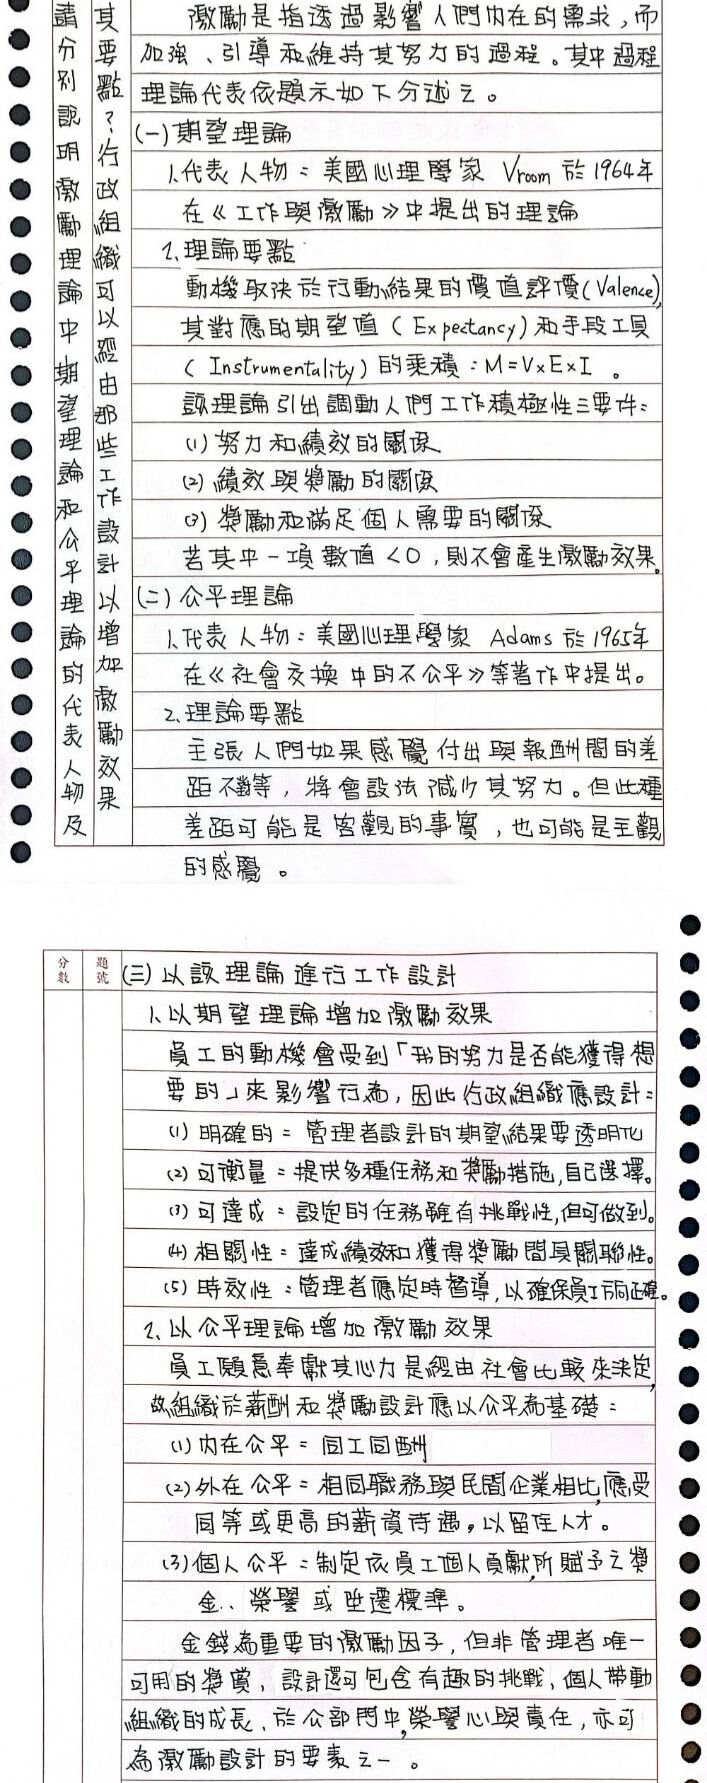 請分別說明激勵理論中期望理論和公平理論的代表人物及
其要點？行政組織可以經由那些工作設計以增加激勵效果
激勵是指透過影響人們內在的需求，而
加強、引導和維持其努力的過程。其中過程
理論代表依題示如下分述之。
(一)期望理論
1.代表人物：美國心理學家 Vroom 於1964年
在《工作與激勵》中提出的理論
2.理論要點
動機取決於行動結果的價值評價(Valence),
其對應的期望值(Expectancy)和手段工具
(Instrumentality)的乘積：M=V×E×I 。
該理論引出調動人們工作積極性三要件：
(1)努力和績效的關係
(2)績效與獎勵的關係
(3)獎勵和滿足個人需要的關係
若其中一項數值<0，則不會產生激勵效果。
(二)公平理論
1.代表人物：美國心理學家 Adams 於1965年
在《社會交換中的不公平》等著作中提出。
2.理論要點
主張人們如果感覺付出與報酬間的差
距不對等，將會設法減少其努力。但此種
差距可能是客觀的事實，也可能是主觀
的感覺。
分數
題號
(三)以該理論進行工作設計
1.以期望理論增加激勵效果
員工的動機會受到「我的努力是否能獲得想
要的」來影響行為，因此行政組織應設計：
(1)明確的：管理者設計的期望結果要透明化
(2)可衡量：提供多種任務和獎勵措施,自己選擇。
(3)可達成：設定的任務雖有挑戰性,但可做到。
(4)相關性：達成績效和獲得獎勵間具關聯性。
(5)時效性：管理者應定時督導,以確保員工方向正確。
2.以公平理論增加激勵效果
員工願意奉獻其心力是經由社會比較來決定,
故組織於薪酬和獎勵設計應以公平為基礎：
(1)內在公平：同工同酬
(2)外在公平：相同職務與民間企業相比,應受
同等或更高的薪資待遇，以留住人才。
(3)個人公平：制定依員工個人貢獻,所賦予之獎
金、榮譽或陞遷標準。
金錢為重要的激勵因子，但非管理者唯一
可用的獎賞，設計還可包含有趣的挑戰、個人帶動
組織的成長、於公部門中,榮譽心與責任，亦可
為激勵設計的要素之一。